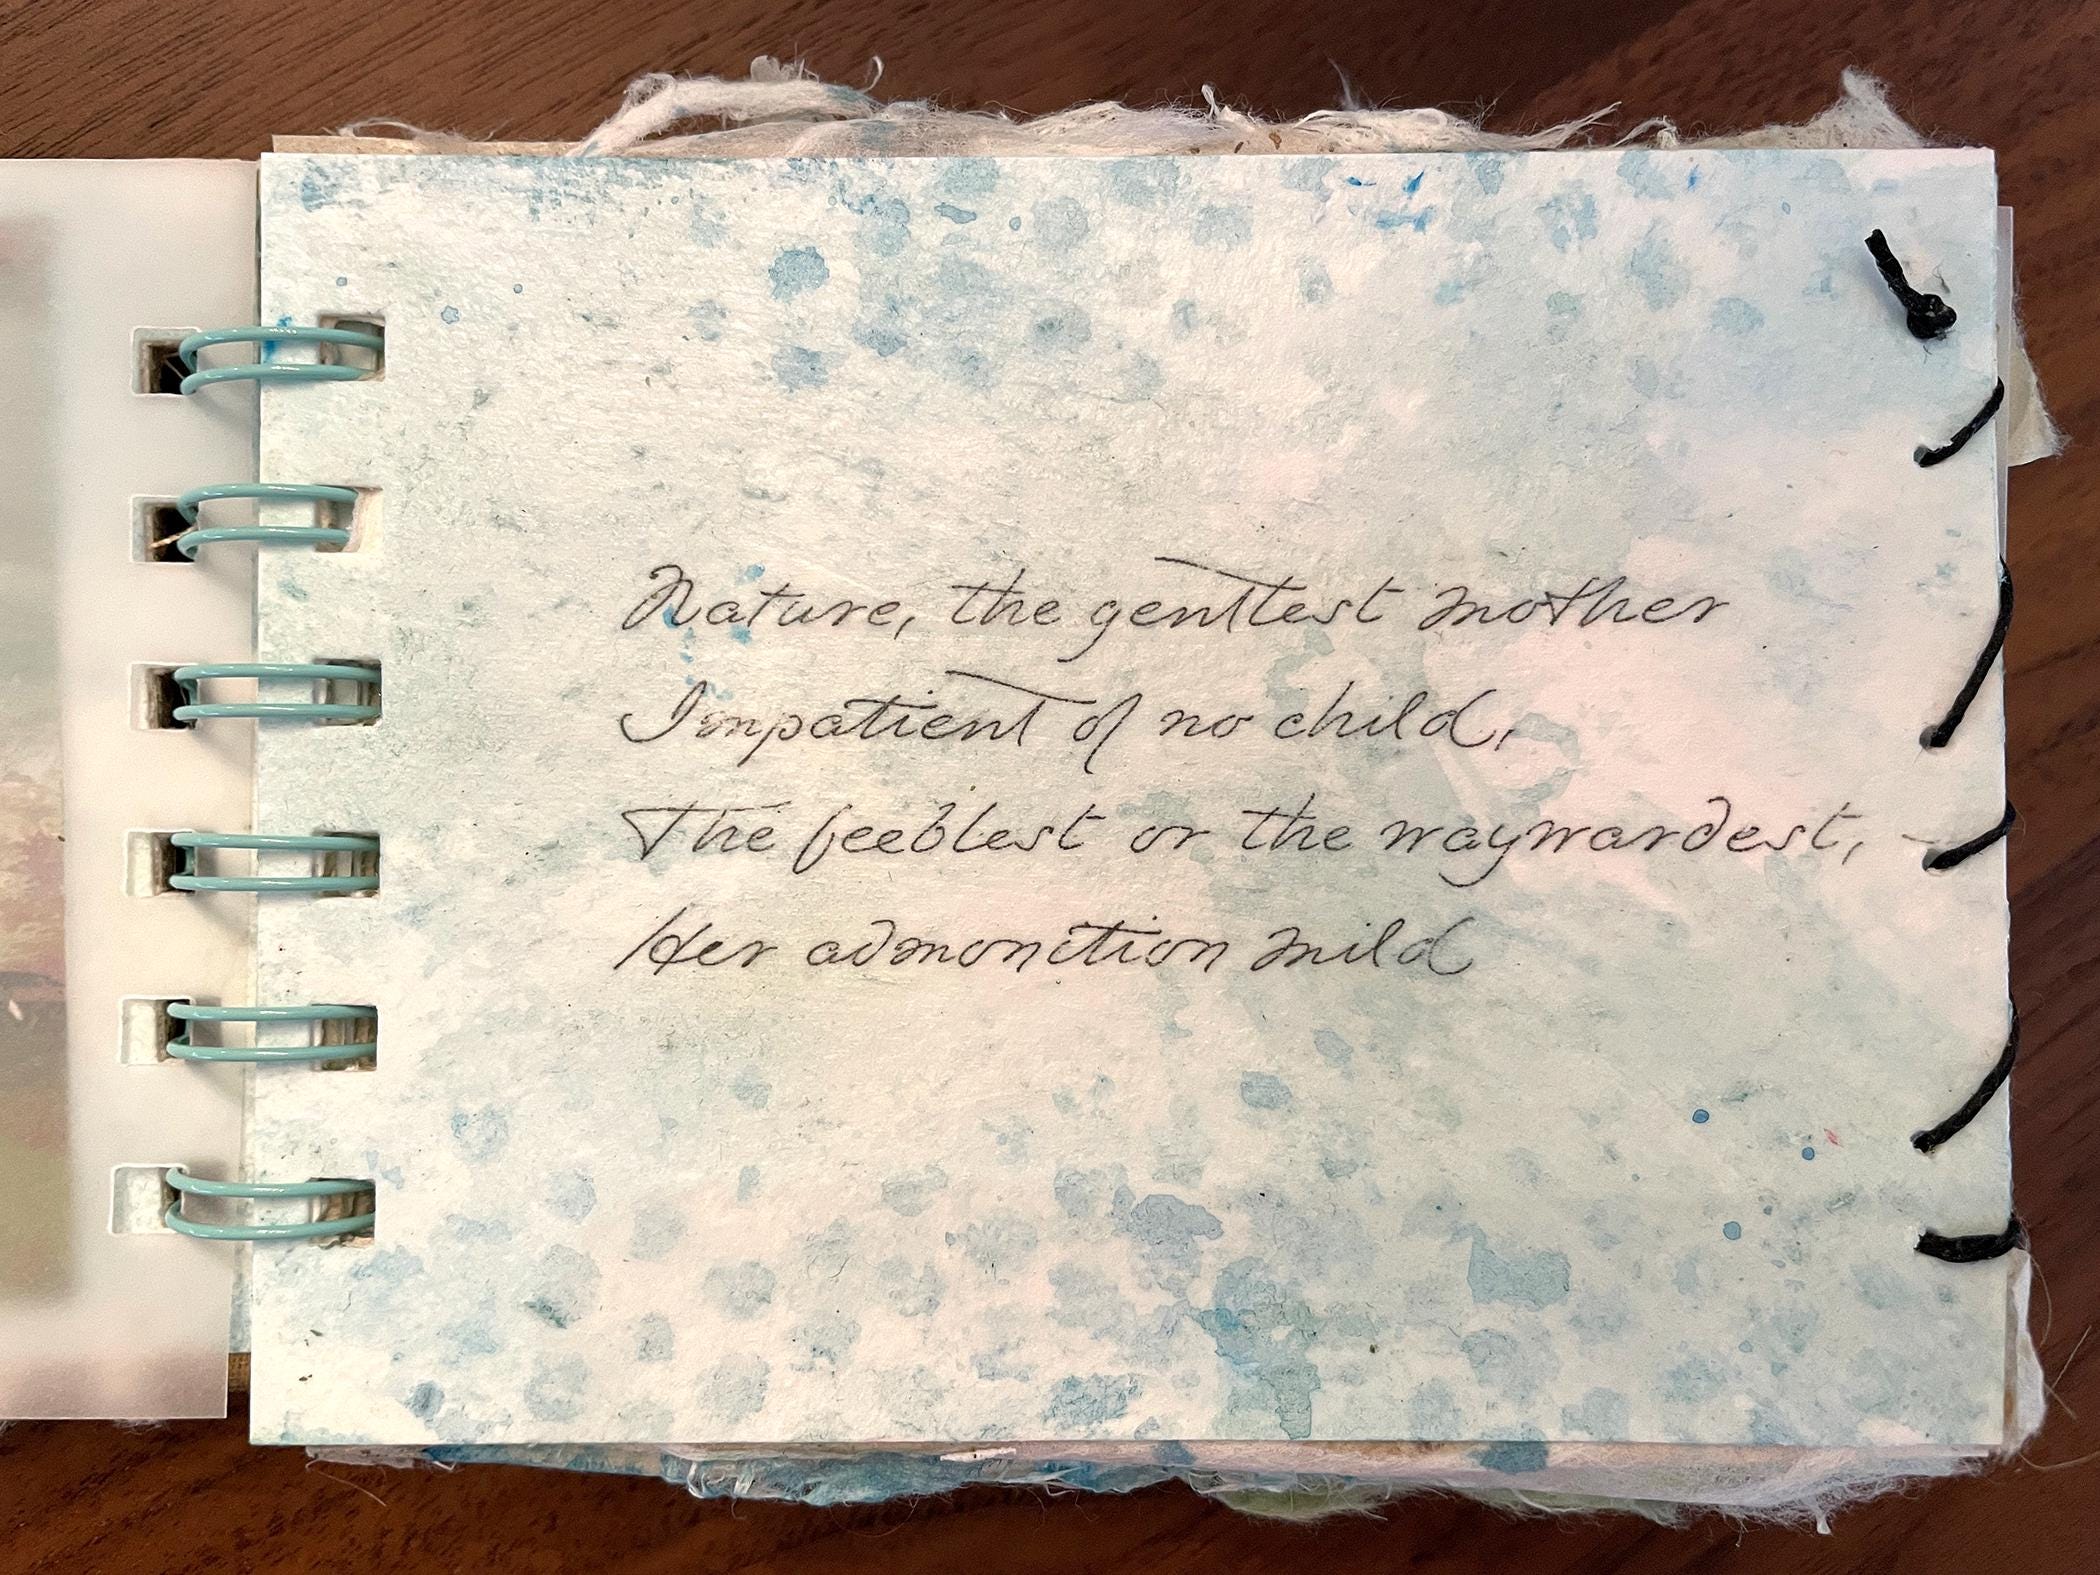 Nature, the gentlest mother
Impatient of no child,
The feeblest or the waywardest, -
Her admonition mild